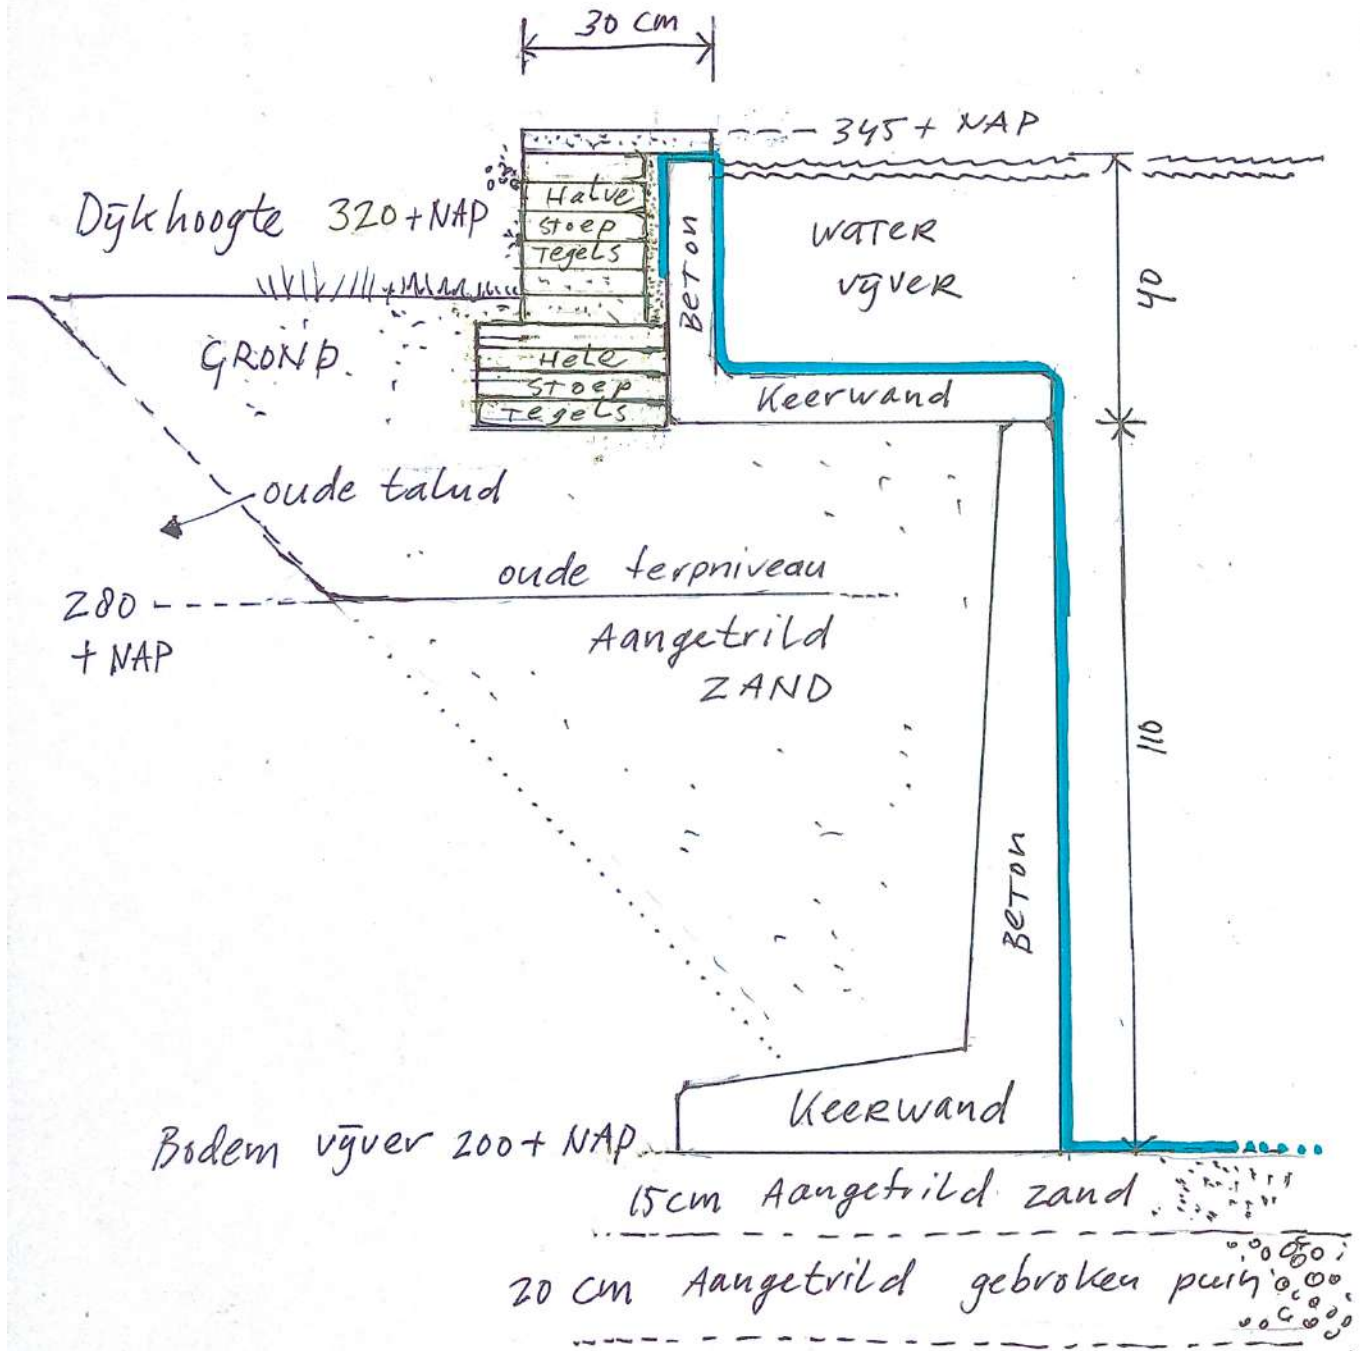 30 cm
345 + NAP
Dijkhoogte 320 + NAP
Halve
stoep
Tegels
BETON
WATER
vijver
40
GROND.
Hele
stoep
Tegels
Keerwand
oude talud
oude terpniveau
280
+ NAP
Aangetrild
ZAND
110
BETON
Keerwand
Bodem vijver 200 + NAP
15cm Aangetrild zand
20 cm Aangetrild gebroken puin